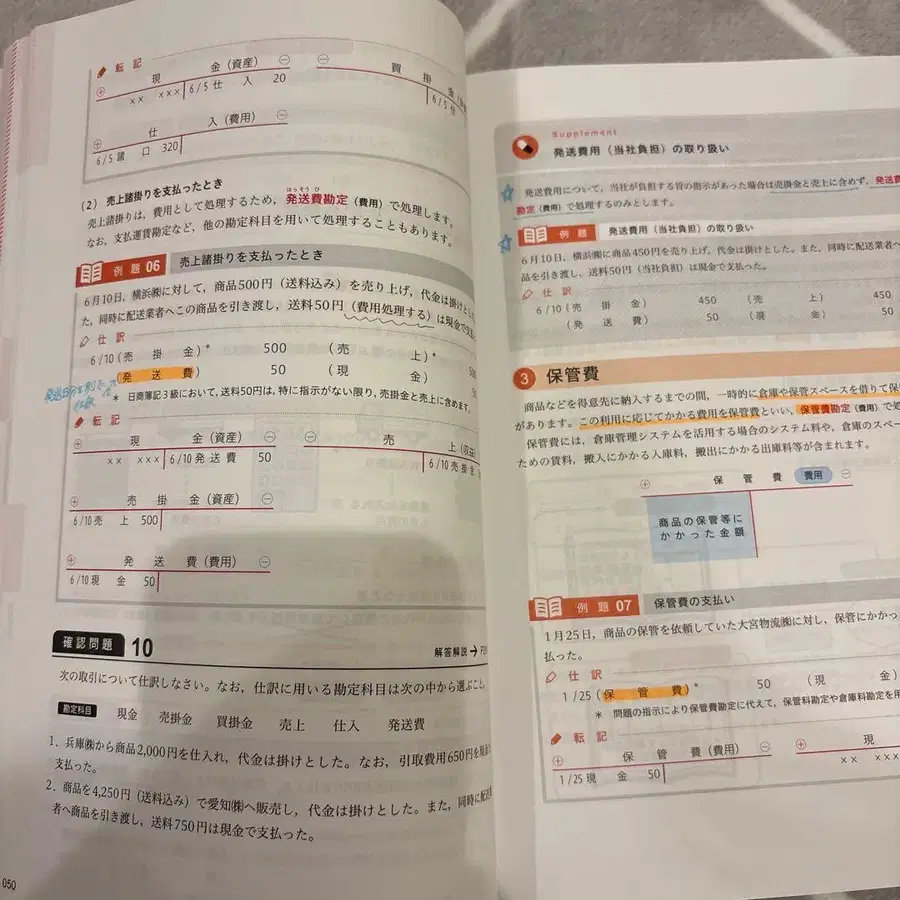 転記
現 金（資産）
買 掛 金
×× ××× 6/5 仕 入 20
6/5 仕
仕 入（費用）
6/5 諸 口 320
（2）売上諸掛りを支払ったとき
はっそう ひ
売上諸掛りは，費用として処理するため，発送費勘定（費用）で処理します。
なお，支払運賃勘定など，他の勘定科目を用いて処理することもあります。
例題 06 売上諸掛りを支払ったとき
6月10日，横浜㈱に対して，商品500円（送料込み）を売り上げ，代金は掛けとし
た，同時に配送業者へこの商品を引き渡し，送料50円（費用処理する）は現金で支
仕訳
6/10（売 掛 金）* 500 （売 上）*
（発 送 費） 50 （現 金）
* 日商簿記3級において，送料50円は，特に指示がない限り，売掛金と売上に含めます。
転記
現 金（資産）
売 上（収益）
×× ××× 6/10 発 送 費 50
6/10 売 掛 金
売 掛 金（資産）
6/10 売 上 500
発 送 費（費用）
6/10 現 金 50
確認問題 10
解答解説→
次の取引について仕訳しなさい。なお，仕訳に用いる勘定科目は次の中から選ぶこと。
勘定科目 現金 売掛金 買掛金 売上 仕入 発送費
1．兵庫㈱から商品2,000円を仕入れ，代金は掛けとした。なお，引取費用650円を現金
支払った。
2．商品を4,250円（送料込み）で愛知㈱へ販売し，代金は掛けとした。また，同時に配送
者へ商品を引き渡し，送料750円は現金で支払った。
050
Supplement
発送費用（当社負担）の取り扱い
発送費用について，当社が負担する旨の指示があった場合は売掛金と売上に含めず，発送費
勘定（費用）で処理するのみとします。
例題 発送費用（当社負担）の取り扱い
6月10日，横浜㈱に商品450円を売り上げ，代金は掛けとした。また，同時に配送業者へ
品を引き渡し，送料50円（当社負担）は現金で支払った。
仕訳
6/10（売 掛 金） 450 （売 上） 450
（発 送 費） 50 （現 金） 50
3 保管費
商品などを得意先に納入するまでの間，一時的に倉庫や保管スペースを借りて保
があります。この利用に応じてかかる費用を保管費といい，保管費勘定（費用）で処
保管費には，倉庫管理システムを活用する場合のシステム料や，倉庫のスペー
ための賃料，搬入にかかる入庫料，搬出にかかる出庫料等が含まれます。
保 管 費 費用
商品の保管等に
かかった金額
例題 07 保管費の支払い
1月25日，商品の保管を依頼していた大宮物流㈱に対し，保管にかかっ
払った。
仕訳
1/25（保 管 費）* 50 （現 金）
* 問題の指示により保管費勘定に代えて，保管料勘定や倉庫料勘定を用
転記
保 管 費（費用）
現
1/25 現 金 50
×× ×××